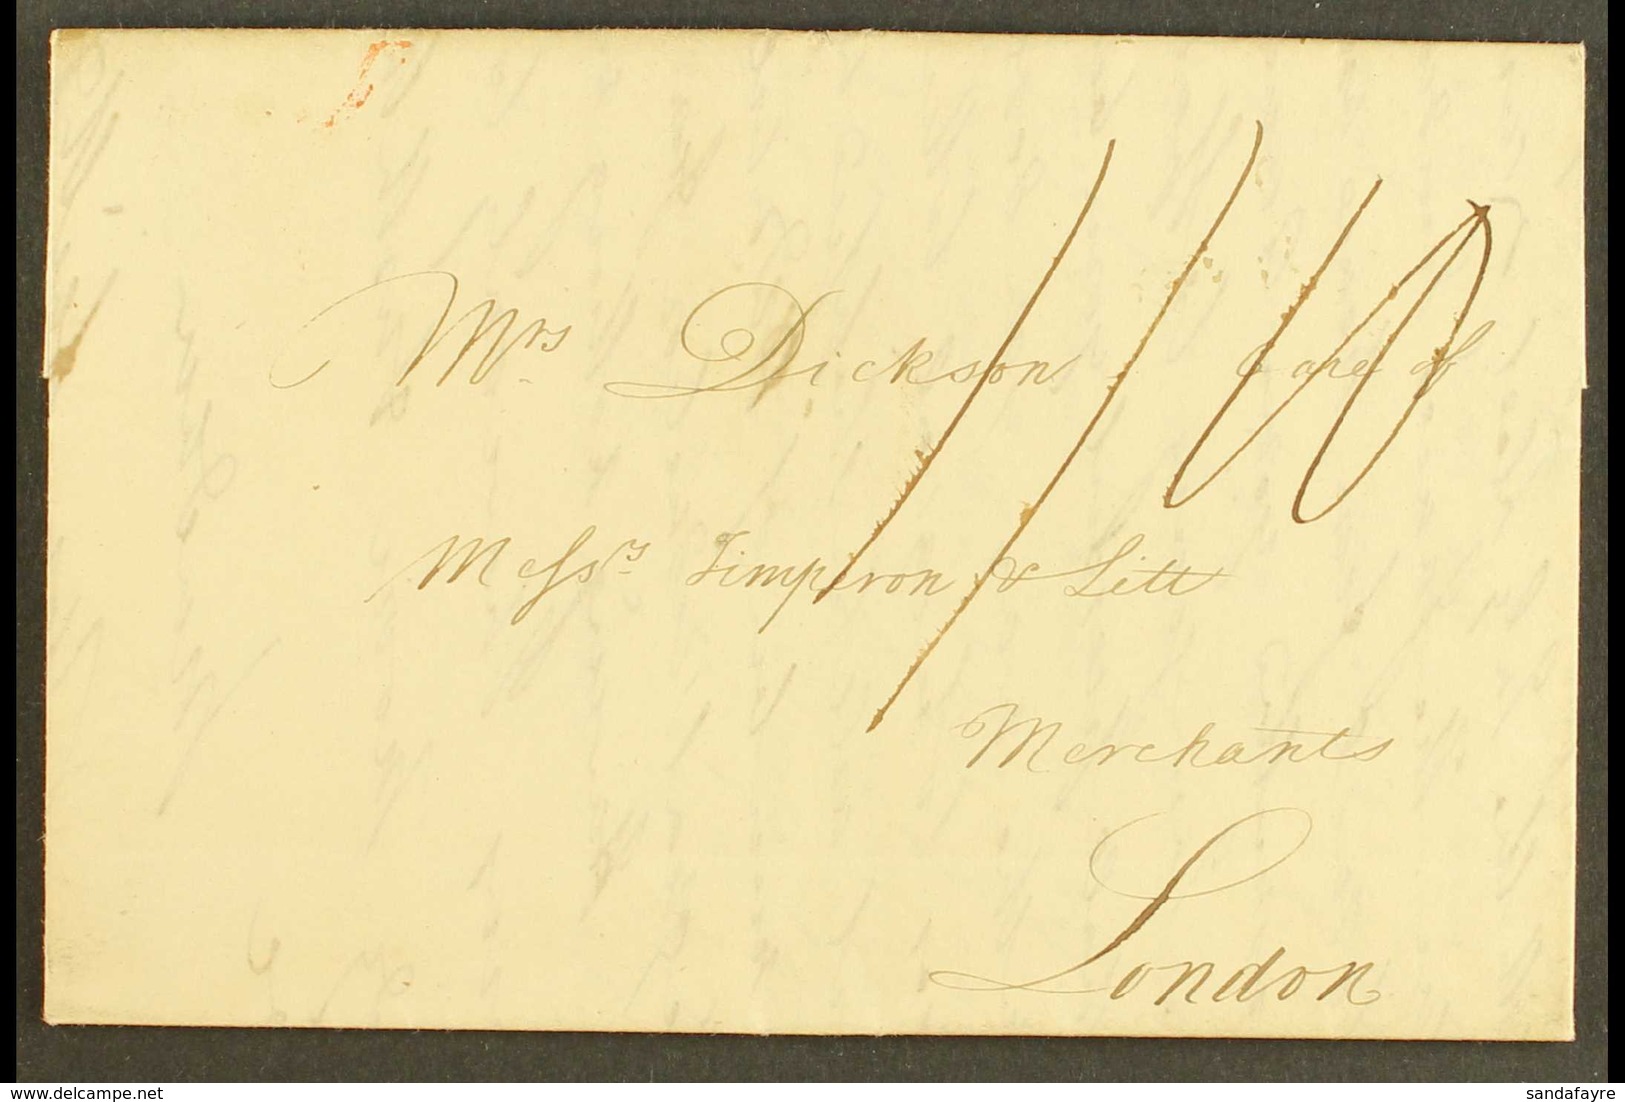 1/10
Mrs. Dickson Care of
Messrs. Timperon & Litt
Merchants
London
delcampe.net
sandafayre